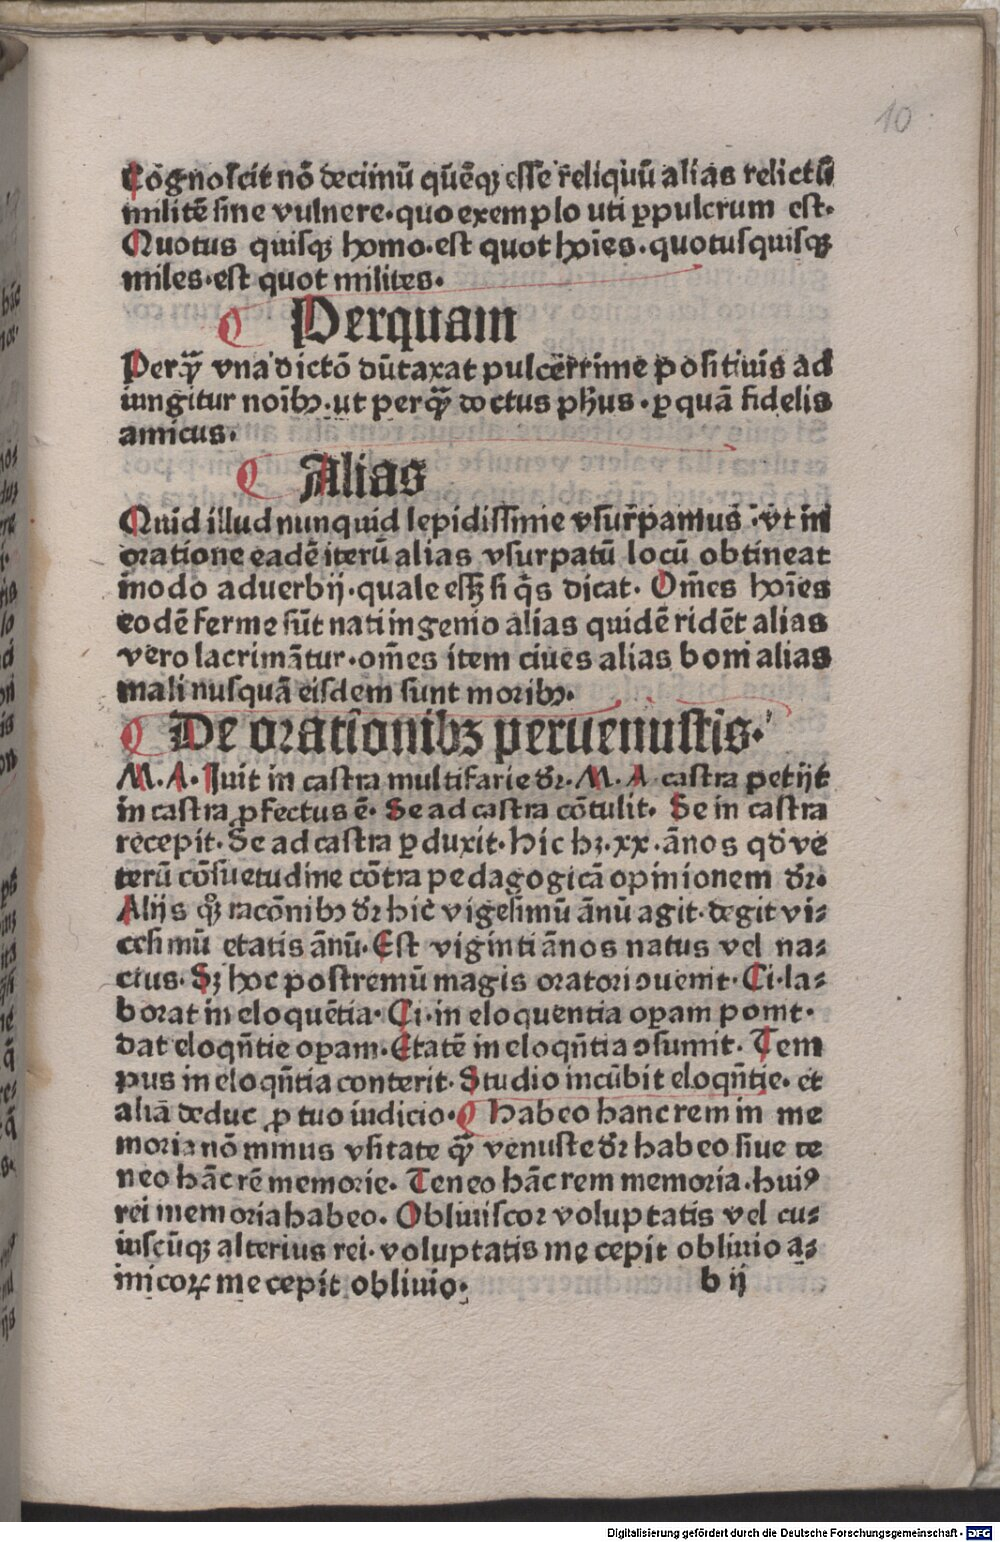 10
Cōgnoscit nō decimū quēqꝫ esse reliquū alias relictū
militē sine vulnere·quo exemplo uti ꝑpulcrum est·
Quotus quisqꝫ homo·est quot hoīes·quotusquisqꝫ
miles·est quot milites·
Perquam
Perqͣꝫ vna dictō dūtaxat pulcerrime positiuis ad
iungitur noībꝫ·ut perqͣꝫ doctus ph̄us·ꝑquā fidelis
amicus·
Alias
Quid illud nunquid lepidissime vsurpamus·vt in
oratione eadē iterū alias vsurpatū locū obtineat
modo aduerbij·quale essꝫ si qͥs dicat· Om̄es hoīes
eodē ferme sūt nati ingenio alias quidē ridēt alias
vero lacrimātur·om̄es item ciues alias boni alias
mali nusquā eisdem sunt moribꝫ·
De orationibꝫ peruenustis·
M·A·Iuit in castra multifarie dr̄·M·A castra petijt
in castra ꝓfectus ē·Se ad castra cōtulit·Se in castra
recepit·Se ad castra ꝑduxit·hic hꝫ·xx·ānos qd̄ ve
terū cōsuetudine cōtra pedagogicā opinionem dr̄·
Alijs qꝫ racōnibꝫ dr̄ hic vigesimū ānū agit·degit vi⸗
cesimū etatis ānū·Est viginti ānos natus vel na⸗
ctus·Sꝫ hoc postremū magis oratori ꝯuenit·Ci·la⸗
borat in eloquētia·Ci·in eloquentia oꝑam ponit·
dat eloqn̄tie oꝑam·Etatē in eloqn̄tia ꝯsumit·Tem
pus in eloqn̄tia conterit·Studio incūbit eloqn̄tie·et
aliā deduc ꝓ tuo iudicio·Habeo hanc rem in me
moria nō minus vsitate qͣꝫ venuste dr̄ habeo siue te
neo hāc rē memorie·Teneo hāc rem memoria·huiꝰ
rei memoria habeo·Obliuiscor voluptatis vel cu⸗
iuscūqꝫ alterius rei·voluptatis me cepit obliuio a⸗
micoꝝ me cepit obliuio·
b ij
Digitalisierung gefördert durch die Deutsche Forschungsgemeinschaft - DFG